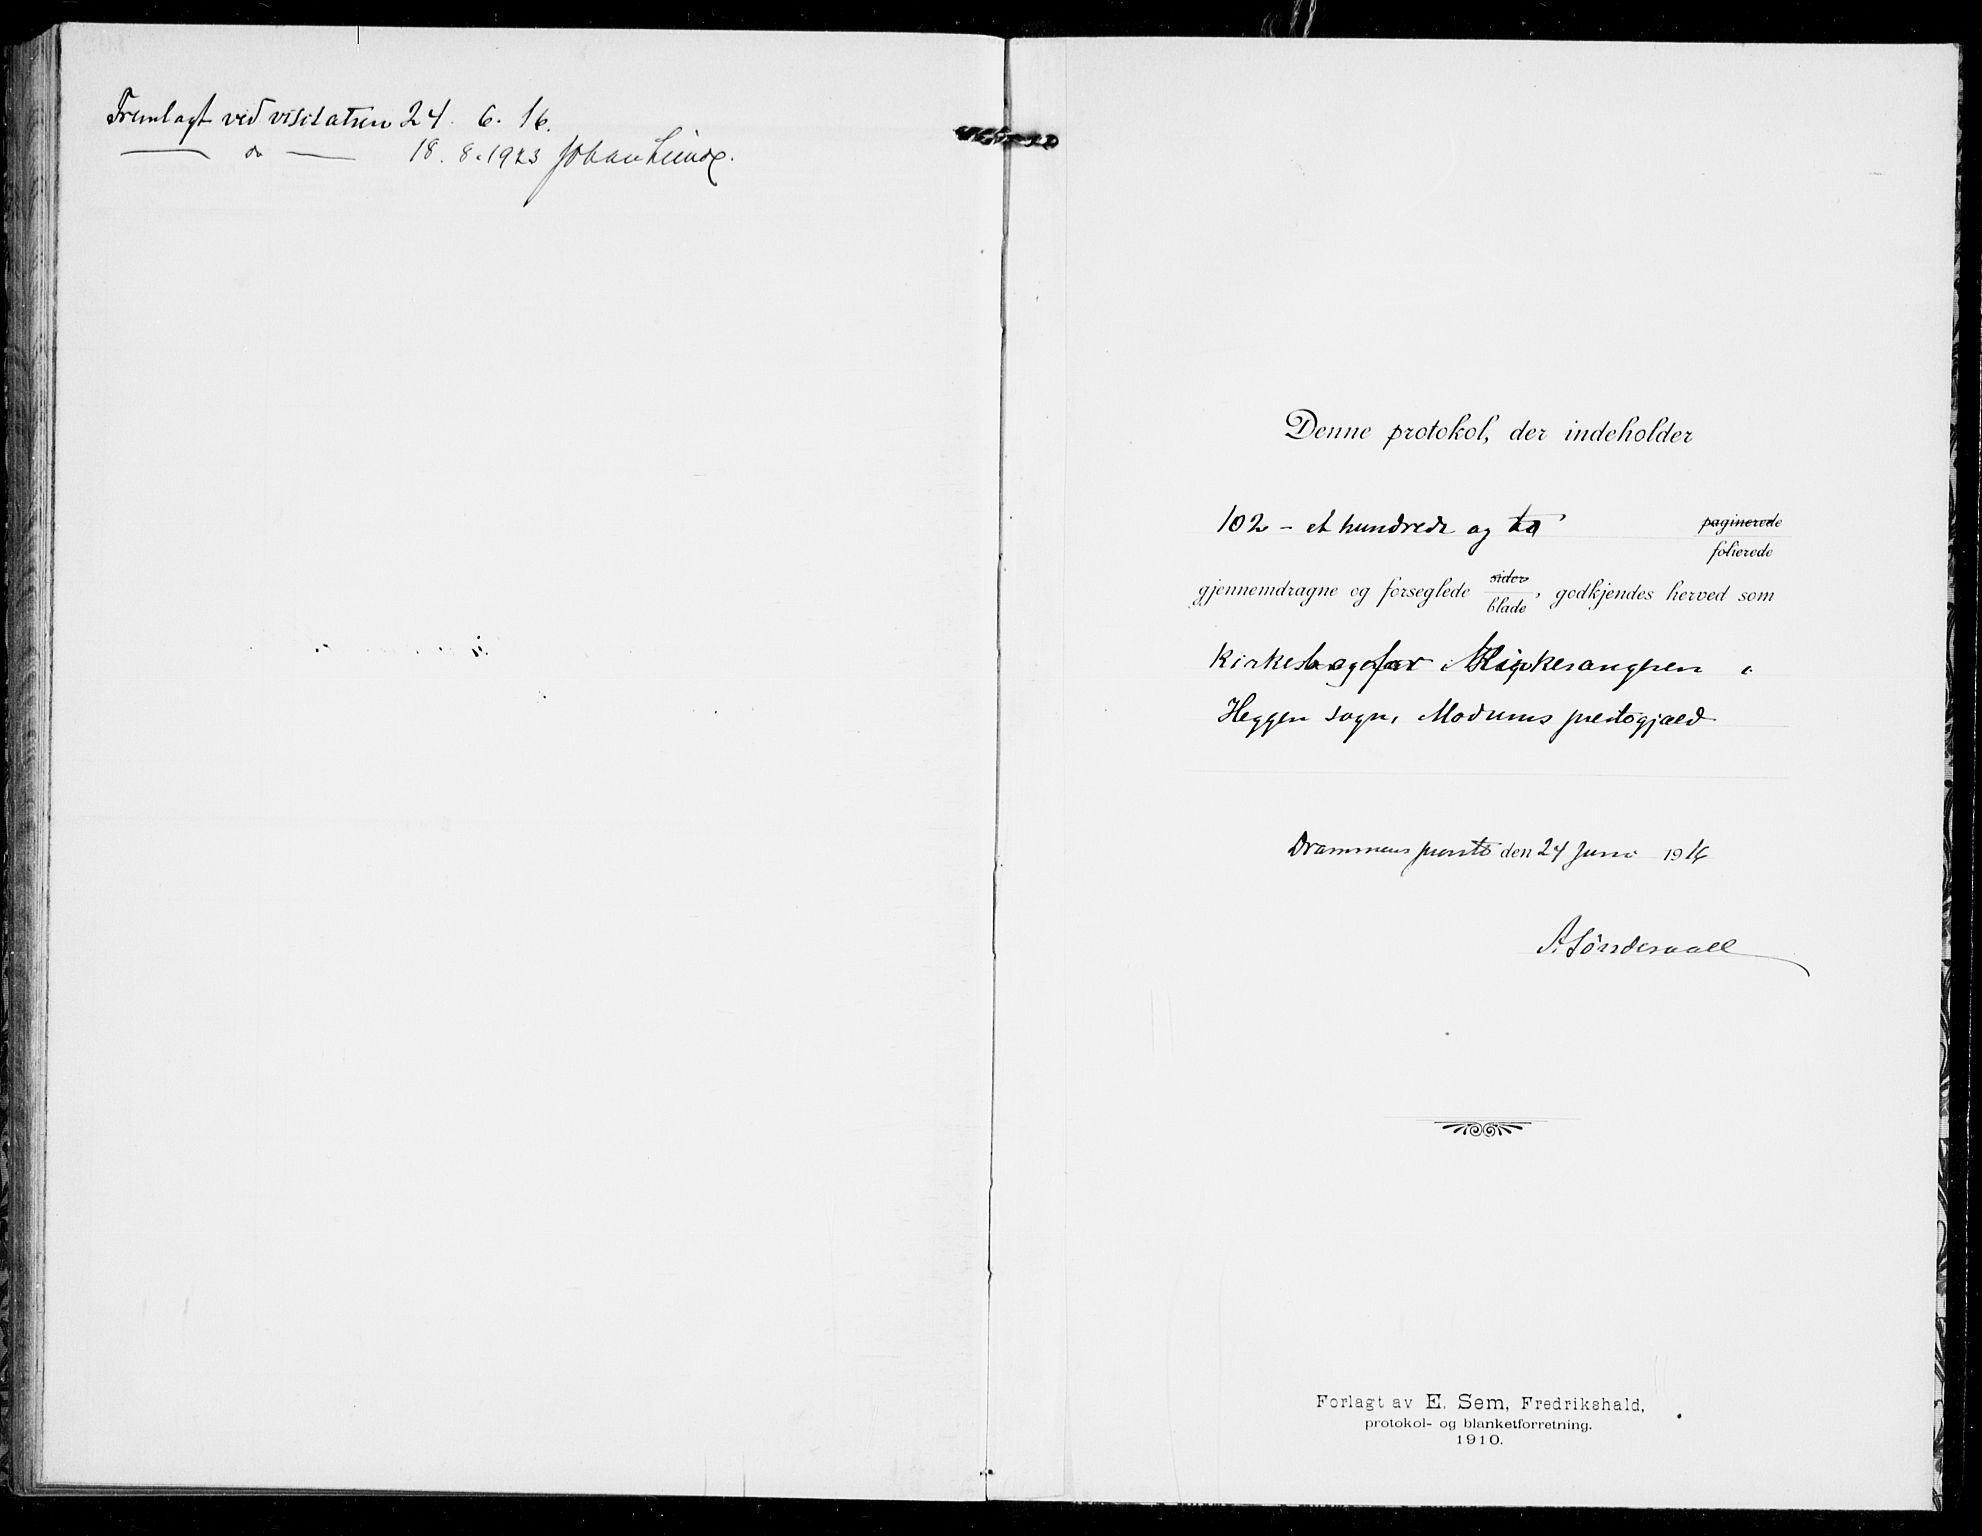 Fremlagt ved visitatsen 24. 6. 16.
— do — 18. 8. 1923 Johan Lunde.
Denne protokol, der indeholder
102 – et hundrede og to paginerede
folierede
gjennemdragne og forseglede sider
blade, godkjendes herved som
kirkesbog for Klokkesangeren i
Heggen sogn, Modums prestegjæld
Drammens provsti den 24 Juni 1916
Forlagt av E. Sem, Fredrikshald,
protokol- og blanketforretning.
1910.